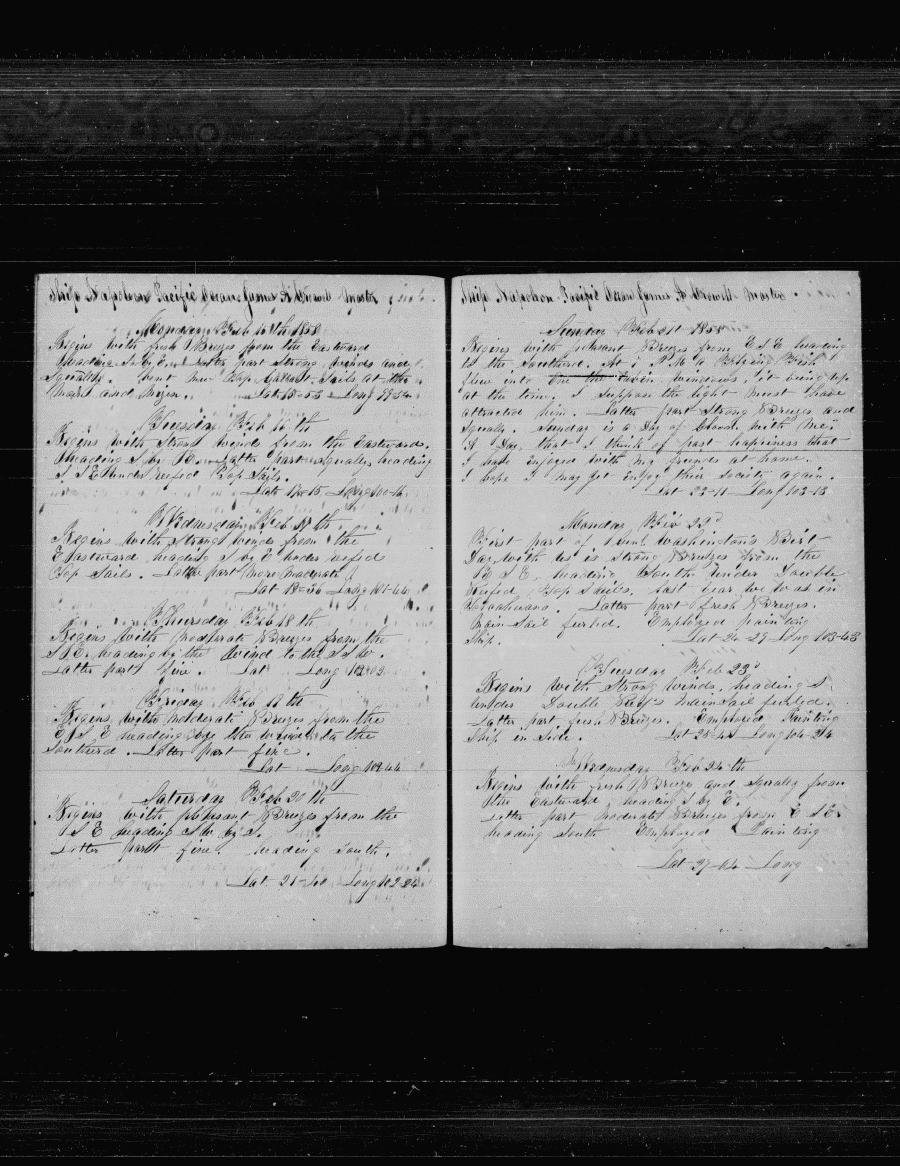 Ship Napoleon Pacific Ocean James A Crowell Master
Monday Feb 15th 1858
Begins with fresh Breezes from the Eastward
heading S by E. Latter part Strong winds and
Squally. Sent new Top Gallant Sails at the
Main and Mizen. Lat 15-55 Long 99-54
Tuesday Feb 16th
Begins with Strong winds from the Eastward.
heading S by E. Latter part squally heading
S S E under reefed Top Sails.
Lat 17-15 Long 100-16
Wednesday Feb 17th
Begins with Strong winds from the
Eastward heading S by E under reefed
Top Sails. Latter part More Moderate
Lat 18-56 Long 101-44
Thursday Feb 18th
Begins with moderate Breezes from the
S E. heading by the wind to the S W.
Latter part fine. Lat Long 102-02
Friday Feb 19th
Begins with moderate Breezes from the
E S E heading by the wind to the
Southerd. Latter part fine.
Lat Long 102-44
Saturday Feb 20th
Begins with pleasant Breezes from the
S E heading S W by S.
Latter part fine. heading South.
Lat 21-40 Long 102-24
Ship Napoleon Pacific Ocean James A Crowell Master
Sunday Feb 21st 1858
Begins with pleasant Breezes from E S E heading
to the Southerd. At 7 P M a Flying Fish
flew into the Cabin windows, it being up
at the time. I suppose the light must have
attracted him. Latter part Strong Breezes and
Squally. Sunday is a Day of with Me.
A Day that I think of past happiness that
I have Enjoyed with my friends at home.
I hope I may yet enjoy their Society again.
Lat 23-11 Long 103-13
Monday Feb 22d
First part of Genl Washington's Birth
Day with us is Strong Breezes from the
E S E. heading South under Double
Reefed Top Sails. Last Year we was in
Latter part fresh Breezes.
Main Sail furled. Employed painting
Ship. Lat 24-29 Long 103-43
Tuesday Feb 23d
Begins with Strong winds, heading S
under Double Reefs Mainsail furled.
Latter part fresh Breezes. Employed Painting
Ship in Side. Lat 25-45 Long 104-24
Wednesday Feb 24th
Begins with fresh Breezes and squally from
the Eastward, heading S by E.
Latter part Moderate Breezes from E S E
heading South Employed Painting
Lat 27-04 Long